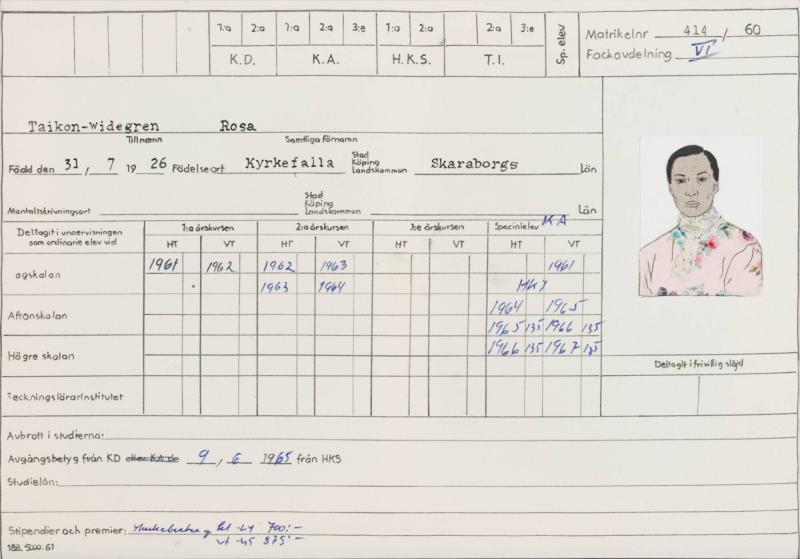 1:a 2:a 1:a 2:a 3:e 1:a 2:a 2:a 3:e Sp. elev
K.D. K.A. H.K.S. T.I.
Matrikelnr 414 / 60
Fackavdelning VI
Taikon-Widegren Rosa
Tillnamn Samtliga förnamn
Född den 31 / 7 1926 Födelseort Kyrkefalla Stad Köping Landskommun Skaraborgs Län
Mantalsskrivningsort Stad Köping Landskommun Län
Deltagit i undervisningen som ordinarie elev vid 1:a årskursen 2:a årskursen 3:e årskursen Specialelev KA
HT VT HT VT HT VT HT VT
agskolan 1961 1962 1962 1963 1961
1963 1964 HKS
Aftonskolan 1964 1965
1965 135 1966 135
Högre skolan 1966 135 1967 135
Deltagit i frivillig slöjd
Teckningslärarinstitutet
Avbrott i studierna:
Avgångsbetyg från KD eller KA de 9 / 6 1965 från HKS
Studielån:
Stipendier och premier: ht -64 700:-
vt -65 875:-
188. 5000. 61